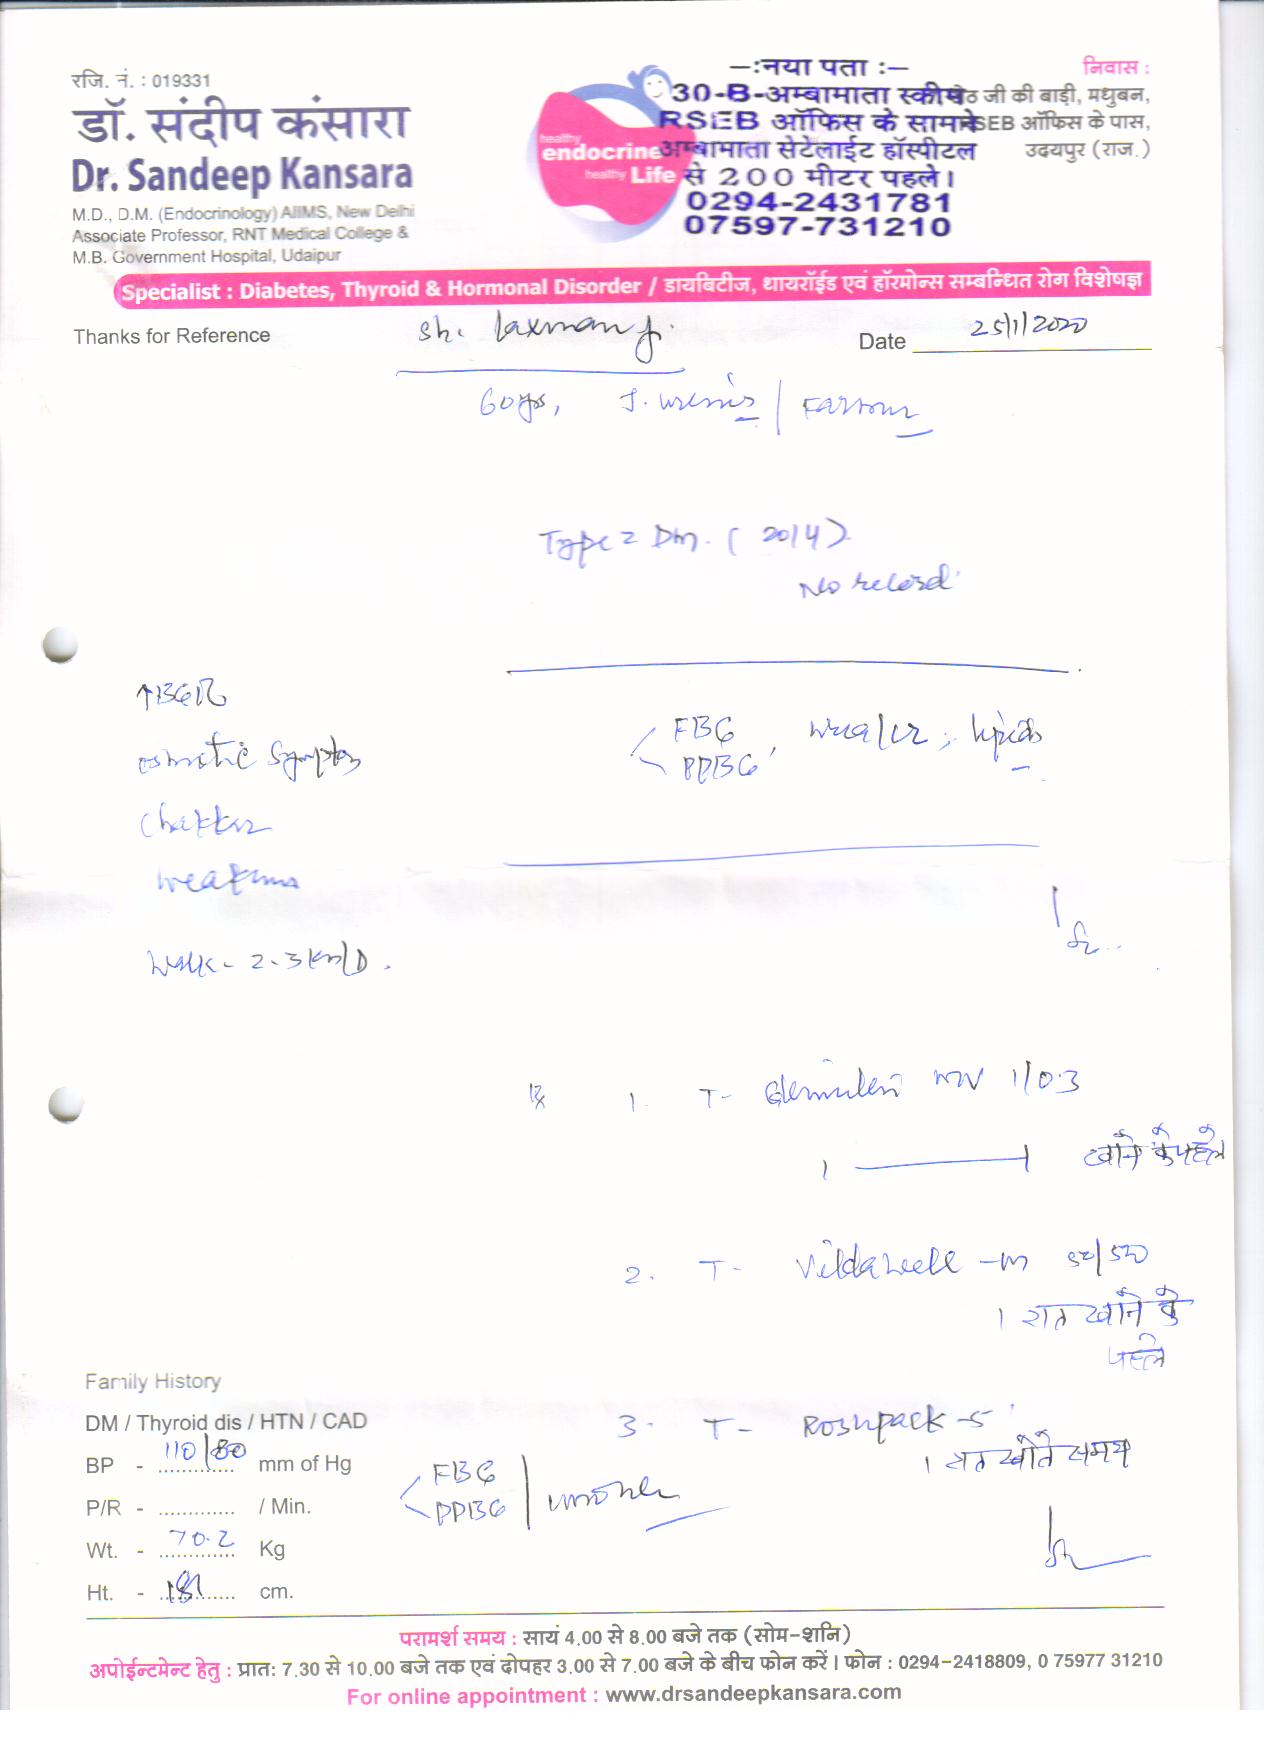 रजि. नं. : 019331
डॉ. संदीप कंसारा
Dr. Sandeep Kansara
M.D., D.M. (Endocrinology) AIIMS, New Delhi
Associate Professor, RNT Medical College &
M.B. Government Hospital, Udaipur
healthy
endocrine
healthy Life
–:नया पता :–
30-B-अम्बामाता स्कीम
RSEB ऑफिस के सामने
अम्बामाता सेटेलाईट हॉस्पीटल
से 200 मीटर पहले।
0294-2431781
07597-731210
निवास :
जी की बाड़ी, मधुबन,
RSEB ऑफिस के पास,
उदयपुर (राज.)
Specialist : Diabetes, Thyroid & Hormonal Disorder / डायबिटीज, थायरॉईड एवं हॉरमोन्स सम्बन्धित रोग विशेषज्ञ
Thanks for Reference
Sh. Laxman ji
Date 25/1/2020
60 yrs,
Type 2 Dm. ( 2014 )
No record
↑BGR
osmotic
Chakkar
weakness
Walk - 2-3 km/D.
FBG
PPBG, lipids
Rx
1. T- 1/0.3
1 खाने के पहले
2. T- -m 50/500
1 रात खाने के
पहले
3. T- -5
1 रात खाते समय
FBG
PPBG
Family History
DM / Thyroid dis / HTN / CAD
BP - 110/80 mm of Hg
P/R - ............. / Min.
Wt. - 70.2 Kg
Ht. - cm.
परामर्श समय : सायं 4.00 से 8.00 बजे तक (सोम-शनि)
अपोईन्टमेन्ट हेतु : प्रात: 7.30 से 10.00 बजे तक एवं दोपहर 3.00 से 7.00 बजे के बीच फोन करें। फोन : 0294-2418809, 0 75977 31210
For online appointment : www.drsandeepkansara.com